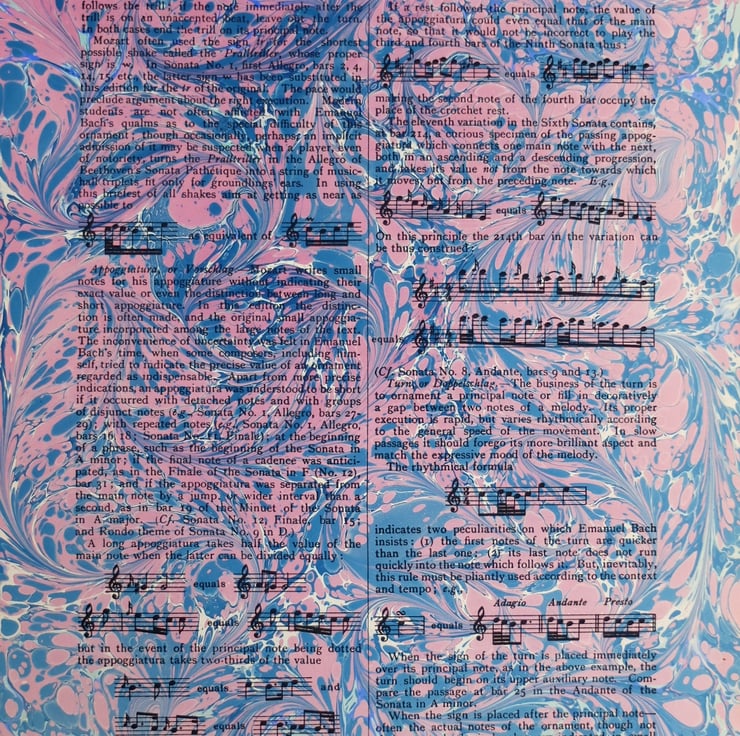 follows the trill; if the note immediately after the
trill is on an accented beat, leave out the turn.
In both cases end the trill on its principal note.
Mozart often used the sign tr for the shortest
possible shake called the Pralltriller, whose proper
sign is Sonata No. 1, first Allegro, bars 2, 4,
14, 15, etc., the latter sign has been substituted in
this edition for the tr of the original. The pace would
preclude argument about the right execution. Modern
students are not affected with Emanuel
Bach's qualms as to the special difficulty of this
ornament; though occasionally, perhaps, an implicit
admission it may be suspected when a player,
of notoriety, turns the Pralltriller in the Allegro of
Beethoven's Sonata Pathétique into a string of music-
hall triplets fit only for groundlings' ears. In using
this briefest of all shakes aim at getting as near as
possible to
as equivalent of
Appoggiatura, or Vorschlag.—Mozart writes small
notes for his appoggiature without indicating their
exact value or even the distinction between long and
short appoggiature. In this edition the distinc-
tion is often made, and the original small appoggia-
ture incorporated among the large notes of the text.
The inconvenience of uncertainty was felt in Emanuel
Bach's time, when some composers, including him-
self, tried to indicate the precise value of those
regarded as indispensable. Apart from such precise
indications, an appoggiatura was understood to be short
if it occurred with detached notes and with groups
of disjunct notes (e.g., Sonata No. 1, Allegro, bars 27,
29); with repeated notes (e.g., Sonata No. Allegro,
bars Sonata No. Finale); at the beginning
of a phrase, such as the beginning of the Sonata in
A minor; if the final note of a cadence was antici-
pated, as in the Finale of the Sonata in F (No. 12)
bar 31; and if the appoggiatura was separated from
the main note by a jump, a wider interval than a
second, as in bar 19 of the Minuet of the Sonata
in A major. (Cf. Sonata No. 12 Finale, bar 15;
and Rondo theme of Sonata No. 9, in D.)
A long appoggiatura takes half the value of the
main note when the latter can be divided equally:
equals
equals
but in the event of the principal note being dotted
the appoggiatura takes two-thirds of the value
equals and
equals
If a rest followed the principal note, the value of
the appoggiatura could even equal that of the main
note, so that it would not be incorrect to play the
third and fourth bars of the Ninth Sonata thus:
equals
making the second note of the fourth bar occupy the
place of the crotchet rest.
The eleventh variation in the Sixth Sonata contains,
in bar 214, a curious specimen of the passing appog-
giatura which connects one main note with the next,
both in an ascending and a descending progression,
and takes its value not from the note towards which
it moves, but from the preceding note. E.g.,
equals
On this principle the 214th bar in the variation can
be thus construed:
equals
(Cf. Sonata No. 8, Andante, bars 9 and 13.)
Turn, or Doppelschlag.—The business of the turn is
to ornament a principal note or fill in decoratively
a gap between two notes of a melody. Its proper
execution is rapid, but varies rhythmically according
to the general speed of the movement. In slow
passages it should forego its more brilliant aspect and
match the expressive mood of the melody.
The rhythmical formula
indicates two peculiarities on which Emanuel Bach
insists: (1) the first notes of the turn are quicker
than the last one; (2) its last note does not run
quickly into the note which follows it. But, inevitably,
this rule must be pliantly used according to the context
and tempo; e.g.,
Adagio Andante Presto
equals
When the sign of the turn is placed immediately
over its principal note, as in the above example, the
turn should begin on its upper auxiliary note. Com-
pare the passage at bar 25 in the Andante of the
Sonata in A minor.
When the sign is placed after the principal note—
often the actual notes of the ornament, though not